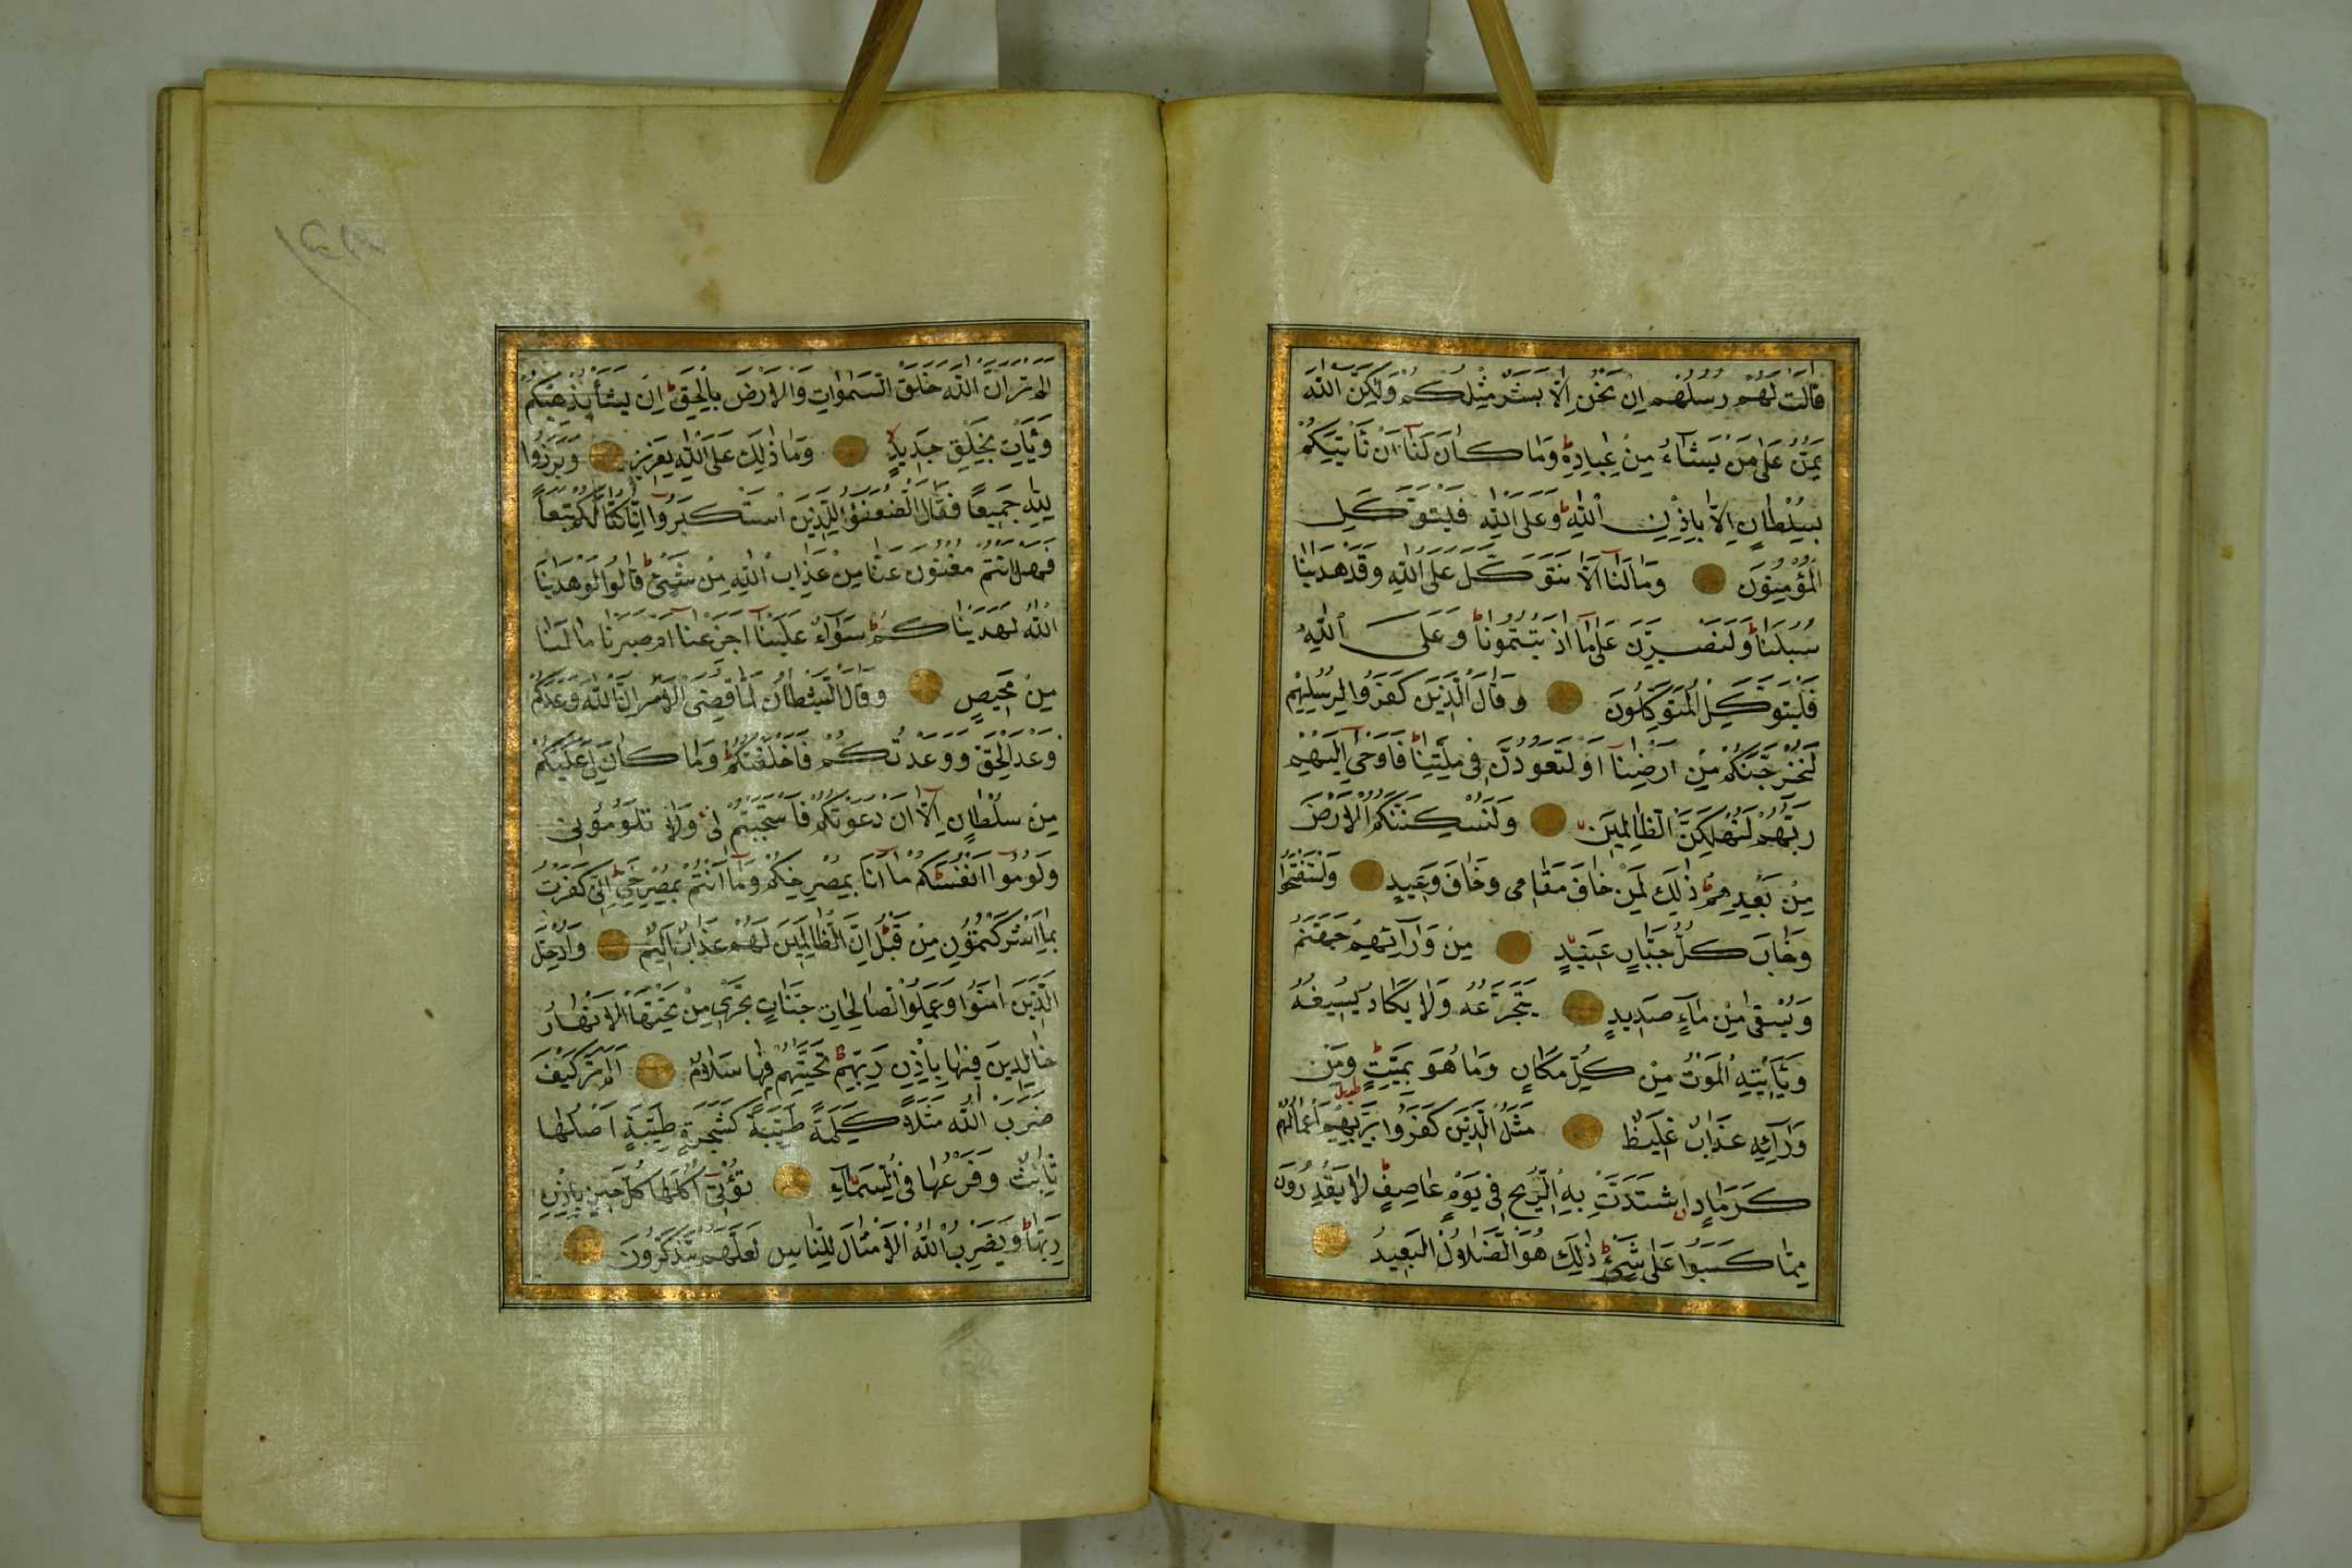 قَالَتْ لَهُمْ رُسُلُهُمْ اِنْ نَحْنُ اِلَّا بَشَرٌ مِثْلُكُمْ وَلٰكِنَّ اللّٰهَ
يَمُنُّ عَلٰى مَنْ يَشَآءُ مِنْ عِبَادِهِ وَمَا كَانَ لَنَآ اَنْ نَأْتِيَكُمْ
بِسُلْطَانٍ اِلَّا بِاِذْنِ اللّٰهِ وَعَلَى اللّٰهِ فَلْيَتَوَكَّلِ
الْمُؤْمِنُونَ وَمَا لَنَآ اَلَّا نَتَوَكَّلَ عَلَى اللّٰهِ وَقَدْ هَدٰينَا
سُبُلَنَا وَلَنَصْبِرَنَّ عَلٰى مَآ اٰذَيْتُمُونَا وَعَلَى اللّٰهِ
فَلْيَتَوَكَّلِ الْمُتَوَكِّلُونَ وَقَالَ الَّذِينَ كَفَرُوا لِرُسُلِهِمْ
لَنُخْرِجَنَّكُمْ مِنْ اَرْضِنَآ اَوْ لَتَعُودُنَّ فِى مِلَّتِنَا فَاَوْحٰٓى اِلَيْهِمْ
رَبُّهُمْ لَنُهْلِكَنَّ الظَّالِمِينَ وَلَنُسْكِنَنَّكُمُ الْاَرْضَ
مِنْ بَعْدِهِمْ ذٰلِكَ لِمَنْ خَافَ مَقَامِى وَخَافَ وَعِيدِ وَاسْتَفْتَحُوا
وَخَابَ كُلُّ جَبَّارٍ عَنِيدٍ مِنْ وَرَآئِهِمْ جَهَنَّمُ
وَيُسْقٰى مِنْ مَآءٍ صَدِيدٍ يَتَجَرَّعُهُ وَلَا يَكَادُ يُسِيغُهُ
وَيَأْتِيهِ الْمَوْتُ مِنْ كُلِّ مَكَانٍ وَمَا هُوَ بِمَيِّتٍ وَمِنْ
وَرَآئِهِ عَذَابٌ غَلِيظٌ مَثَلُ الَّذِينَ كَفَرُوا بِرَبِّهِمْ اَعْمَالُهُمْ
كَرَمَادٍ اشْتَدَّتْ بِهِ الرِّيحُ فِى يَوْمٍ عَاصِفٍ لَا يَقْدِرُونَ
مِمَّا كَسَبُوا عَلٰى شَىْءٍ ذٰلِكَ هُوَ الضَّلَالُ الْبَعِيدُ
اَلَمْ تَرَ اَنَّ اللّٰهَ خَلَقَ السَّمٰوَاتِ وَالْاَرْضَ بِالْحَقِّ اِنْ يَشَأْ يُذْهِبْكُمْ
وَيَأْتِ بِخَلْقٍ جَدِيدٍ وَمَا ذٰلِكَ عَلَى اللّٰهِ بِعَزِيزٍ وَبَرَزُوا
لِلّٰهِ جَمِيعًا فَقَالَ الضُّعَفٰٓؤُا لِلَّذِينَ اسْتَكْبَرُوٓا اِنَّا كُنَّا لَكُمْ تَبَعًا
فَهَلْ اَنْتُمْ مُغْنُونَ عَنَّا مِنْ عَذَابِ اللّٰهِ مِنْ شَىْءٍ قَالُوا لَوْ هَدٰينَا
اللّٰهُ لَهَدَيْنَاكُمْ سَوَآءٌ عَلَيْنَآ اَجَزِعْنَآ اَمْ صَبَرْنَا مَا لَنَا
مِنْ مَحِيصٍ وَقَالَ الشَّيْطَانُ لَمَّا قُضِىَ الْاَمْرُ اِنَّ اللّٰهَ وَعَدَكُمْ
وَعْدَ الْحَقِّ وَوَعَدْتُكُمْ فَاَخْلَفْتُكُمْ وَمَا كَانَ لِىَ عَلَيْكُمْ
مِنْ سُلْطَانٍ اِلَّآ اَنْ دَعَوْتُكُمْ فَاسْتَجَبْتُمْ لِى فَلَا تَلُومُونِى
وَلُومُوٓا اَنْفُسَكُمْ مَآ اَنَا بِمُصْرِخِكُمْ وَمَآ اَنْتُمْ بِمُصْرِخِىَّ اِنِّى كَفَرْتُ
بِمَآ اَشْرَكْتُمُونِ مِنْ قَبْلُ اِنَّ الظَّالِمِينَ لَهُمْ عَذَابٌ اَلِيمٌ وَاُدْخِلَ
الَّذِينَ اٰمَنُوا وَعَمِلُوا الصَّالِحَاتِ جَنَّاتٍ تَجْرِى مِنْ تَحْتِهَا الْاَنْهَارُ
خَالِدِينَ فِيهَا بِاِذْنِ رَبِّهِمْ تَحِيَّتُهُمْ فِيهَا سَلَامٌ اَلَمْ تَرَ كَيْفَ
ضَرَبَ اللّٰهُ مَثَلًا كَلِمَةً طَيِّبَةً كَشَجَرَةٍ طَيِّبَةٍ اَصْلُهَا
ثَابِتٌ وَفَرْعُهَا فِى السَّمَآءِ تُؤْتِٓى اُكُلَهَا كُلَّ حِينٍ بِاِذْنِ
رَبِّهَا وَيَضْرِبُ اللّٰهُ الْاَمْثَالَ لِلنَّاسِ لَعَلَّهُمْ يَتَذَكَّرُونَ